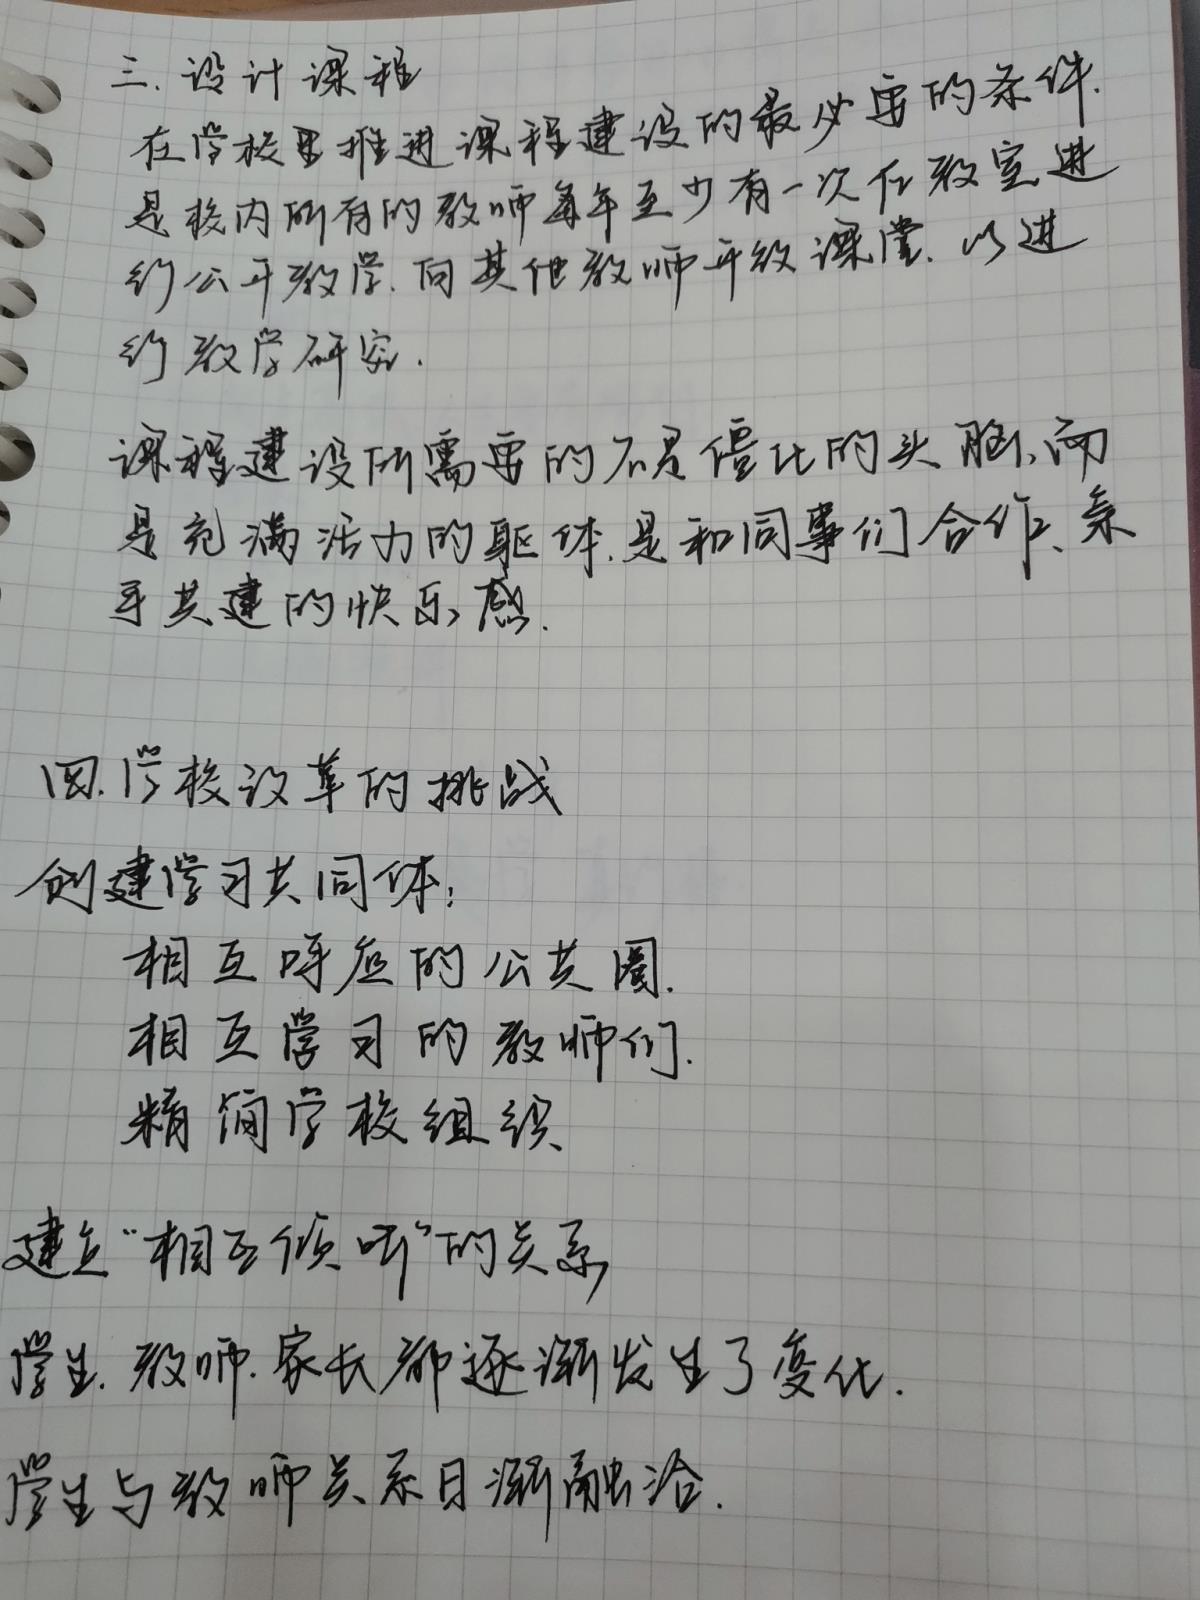 三.设计课程
在学校里推进课程建设的最必要的条件.
是校内所有的教师每年至少有一次在教室进
行公开教学.向其他教师开放课堂.以进
行教学研究.
课程建设所需要的不是僵化的头脑、而
是充满活力的躯体.是和同事们合作、亲
手共建的快乐感.
四.学校改革的挑战
创建学习共同体:
相互呼应的公共圈.
相互学习的教师们.
精简学校组织
建立“相互倾听”的关系
学生.教师.家长都逐渐发生了变化.
学生与教师关系日渐融洽.